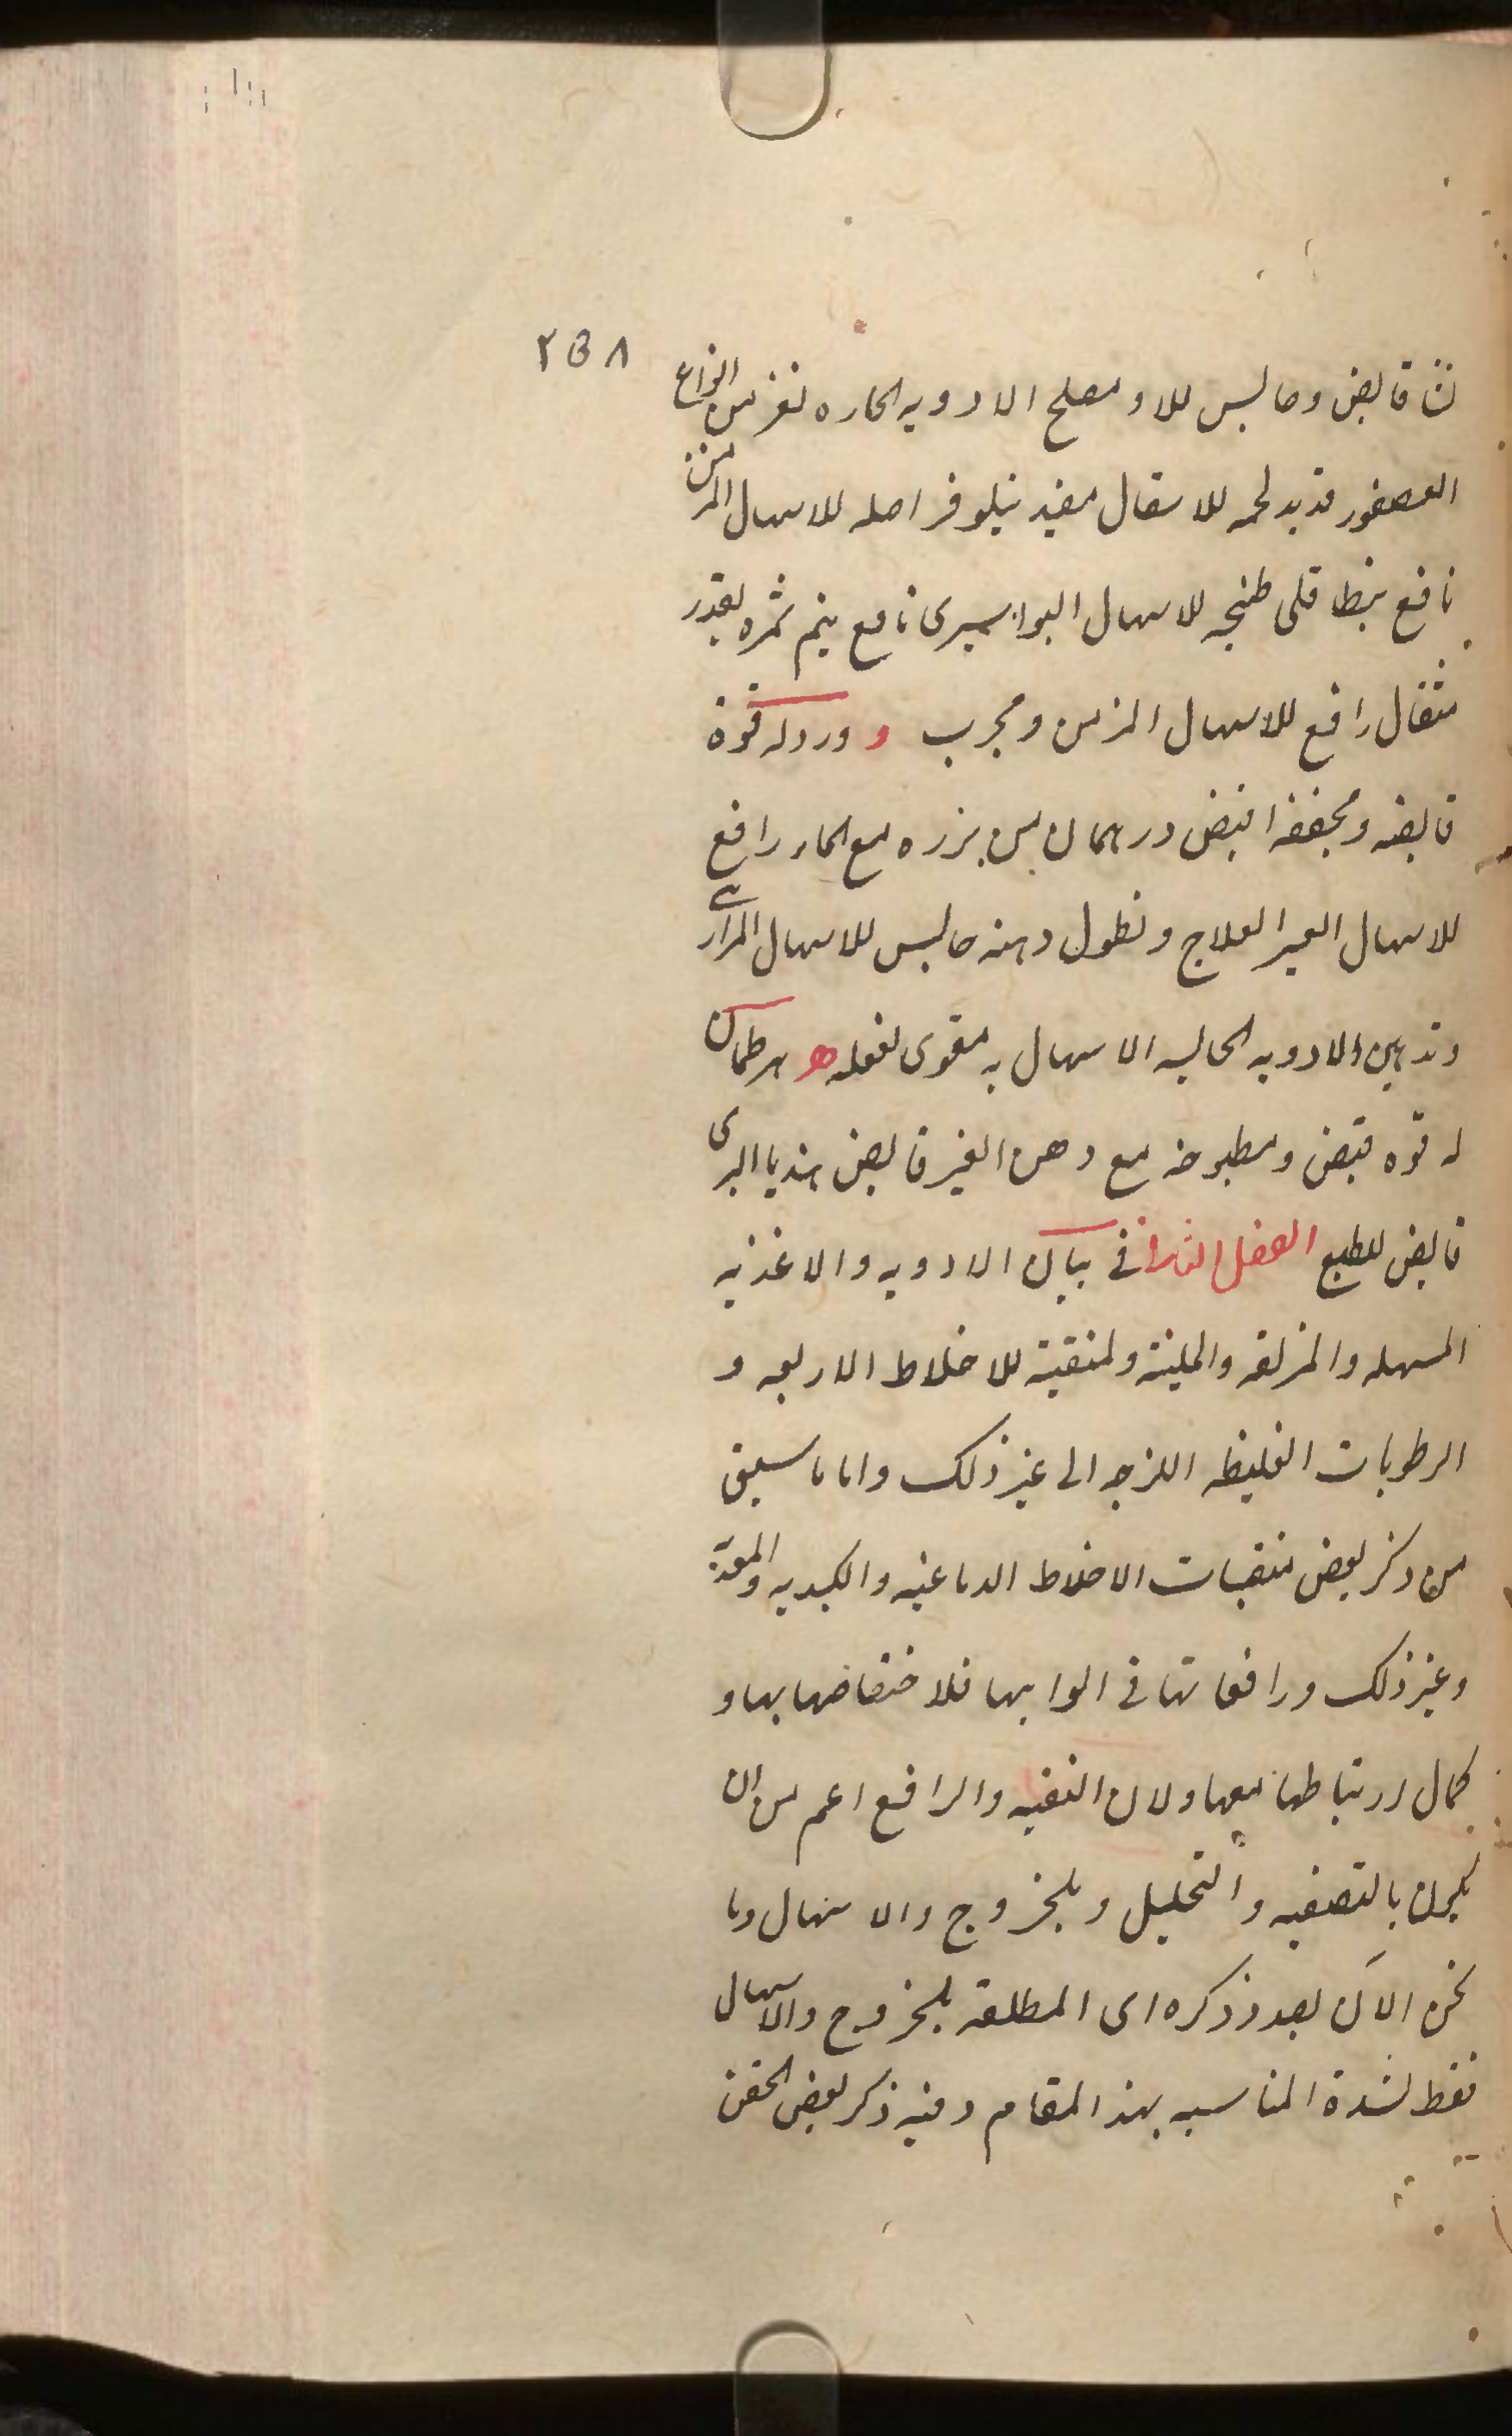 ۲۵۸
قابض وحابس للاو مصلح الادویه الحاره نغزمن انواع
العصفور قدید لحمه للاسهال مفید نیلوفر اصله للاسهال المزمن
نافع نبطا قلی طبخه للاسهال البواسیری نافع ینم ثمره بقدر
مثقال رافع للاسهال المزمن ومجرب و وردله قوة
قابضه ومجففه ابیض درهمان من بزره مع الماء رافع
للاسهال العسر العلاج ونطول دهنه حابس للاسهال المراری
وتدهین الادویه الحابسه الاسهال به مقوی لفعله ه هرطمان
له قوه قبض ومطبوخه مع دهن الغیر قابض هندبا البری
قابض للطبع الفصل الثانی فی بیان الادویه والاغذیه
المسهله والمزلقه والملینة ولمنقیة للاخلاط الاربعه و
الرطوبات الغلیظه اللزجه الی غیر ذلک واما ما سبق
من ذکر بعض منقیات الاخلاط الدماغیه والکبدیه والمعدیة
وغیر ذلک ورافعاتها فی ابوابها فلاختصاصها بها و
کمال ارتباطها معها ولان التنقیه والرافع اعم من ان
یکون بالتصفیه والتحلیل وبلخروج والاسهال وما
نحن الآن بصدد ذکره ای المطلقه بلخروج والاسهال
فقط لشدة المناسبه بهذ المقام وفیه ذکر بعض الحقن